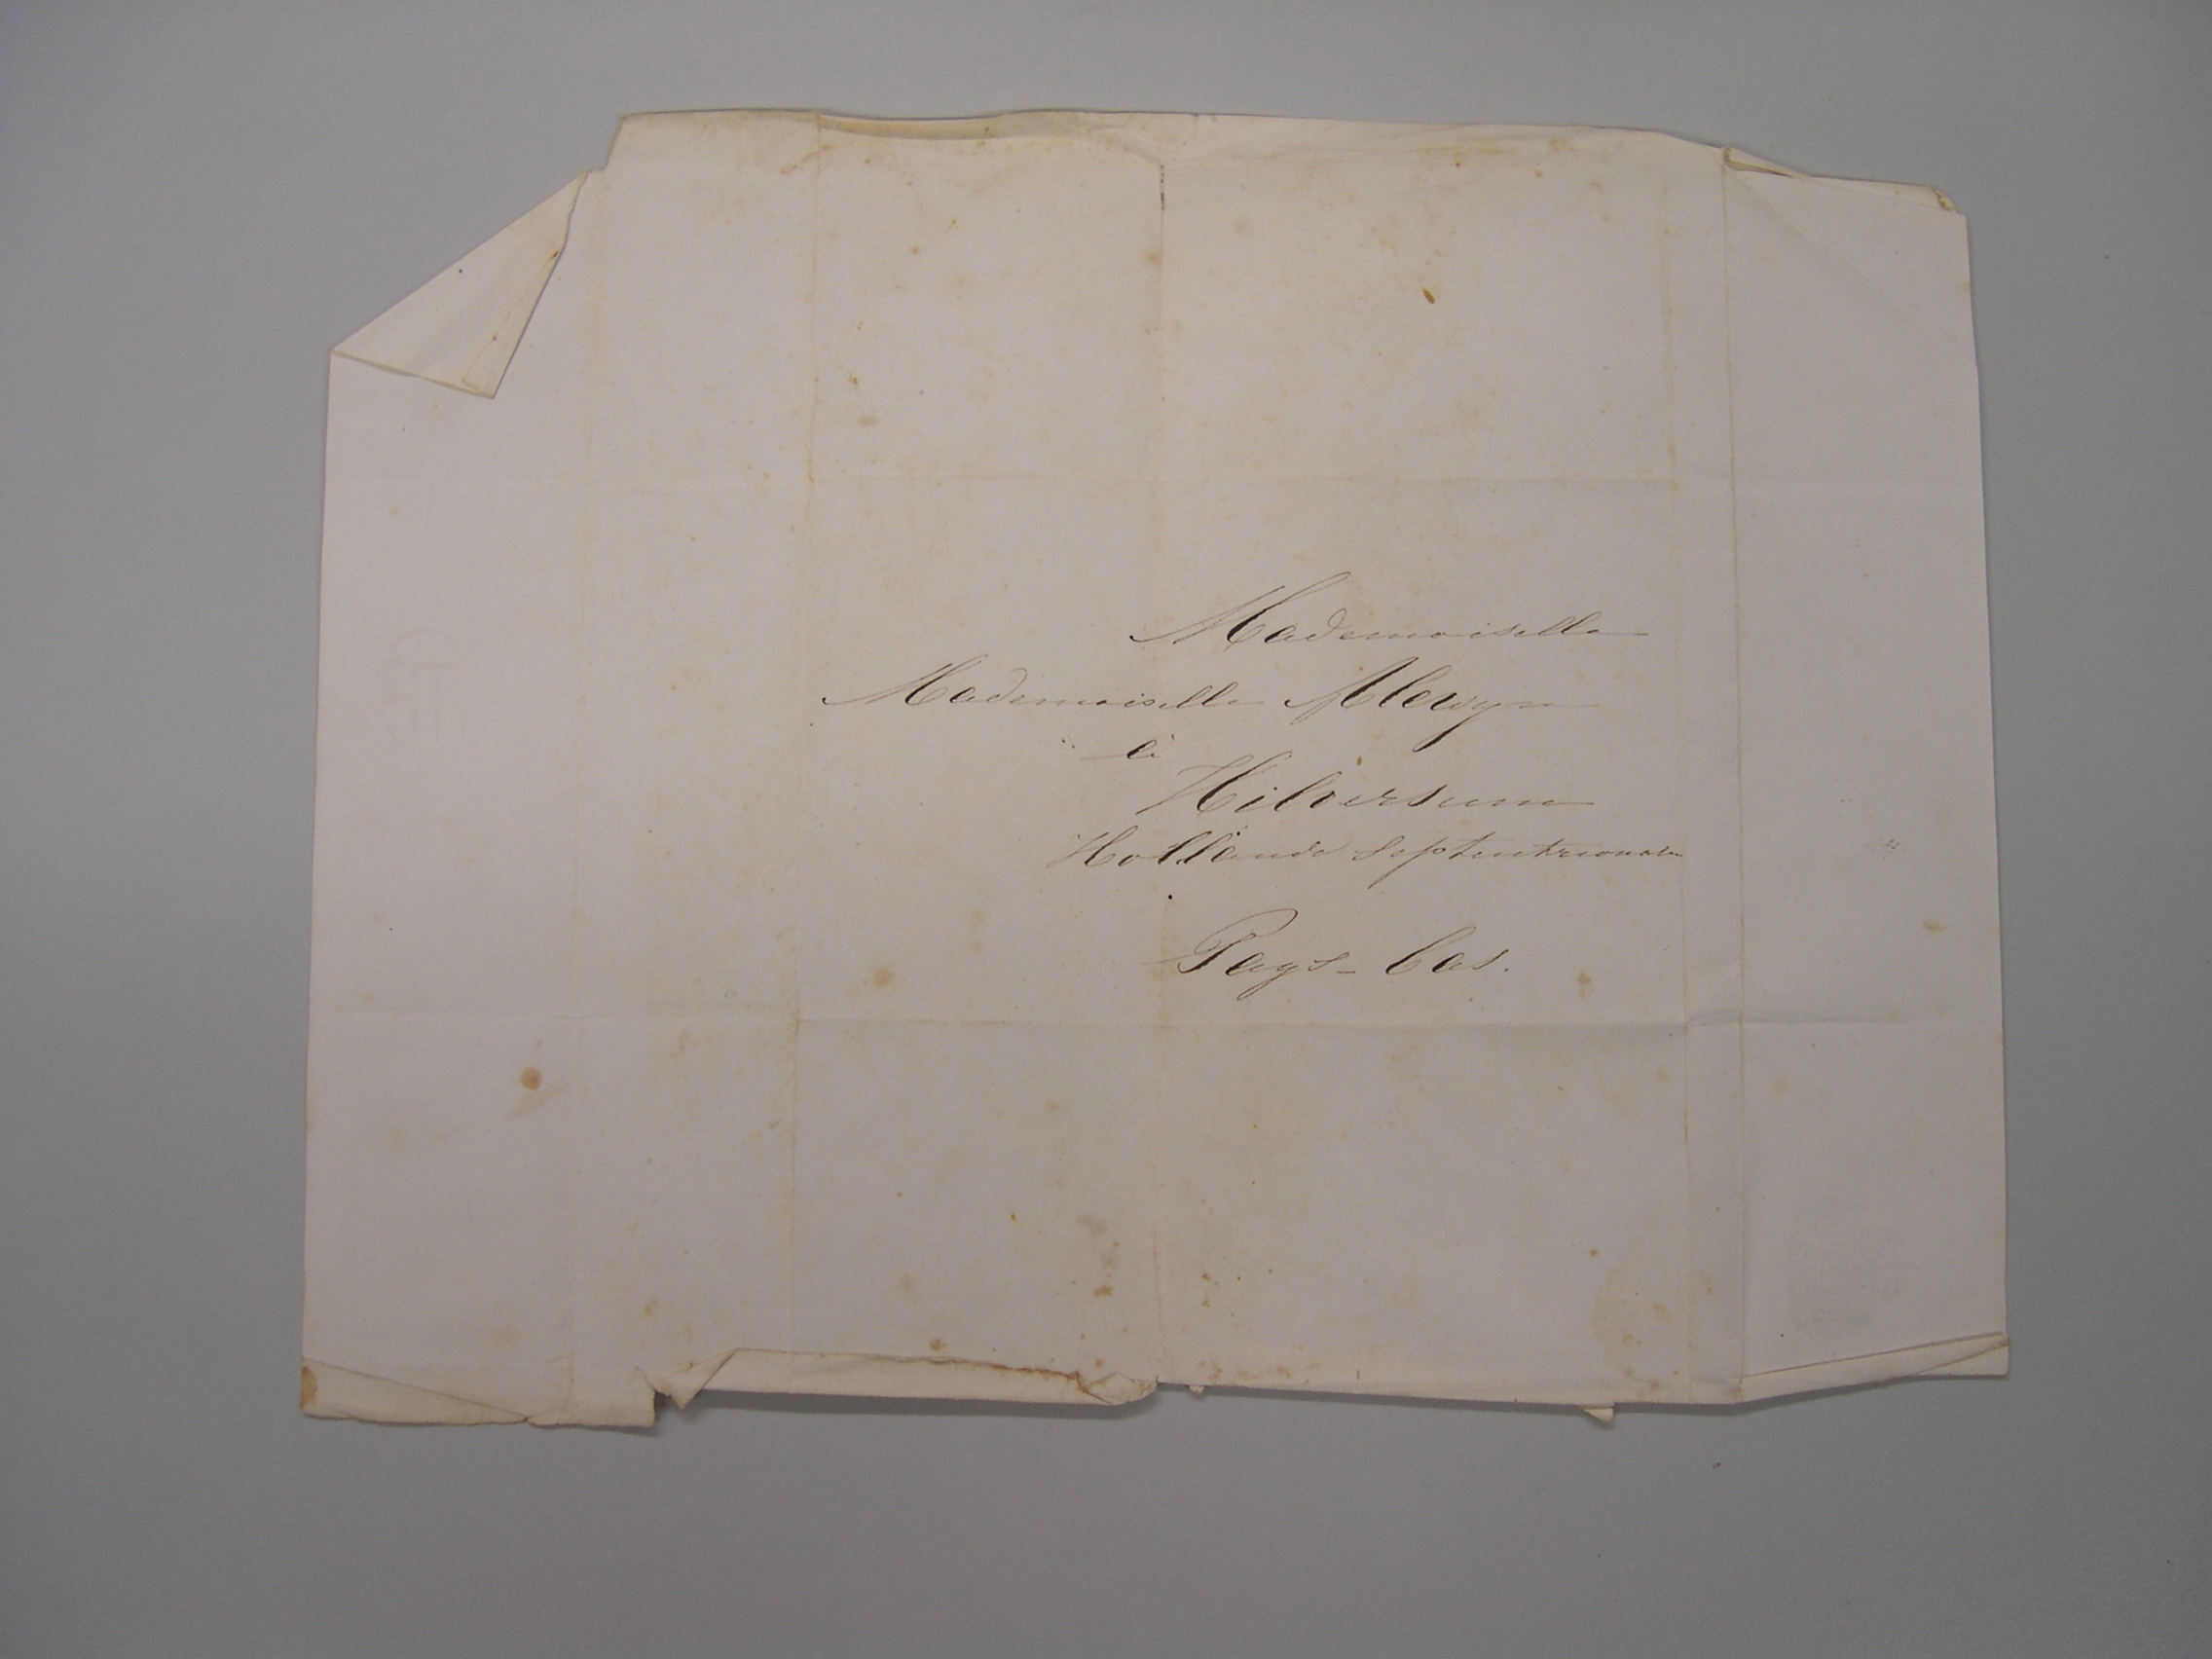 Mademoiselle
Mademoiselle Alewyn
à
Hilversum
Hollande Septentrionale
Pays-bas.